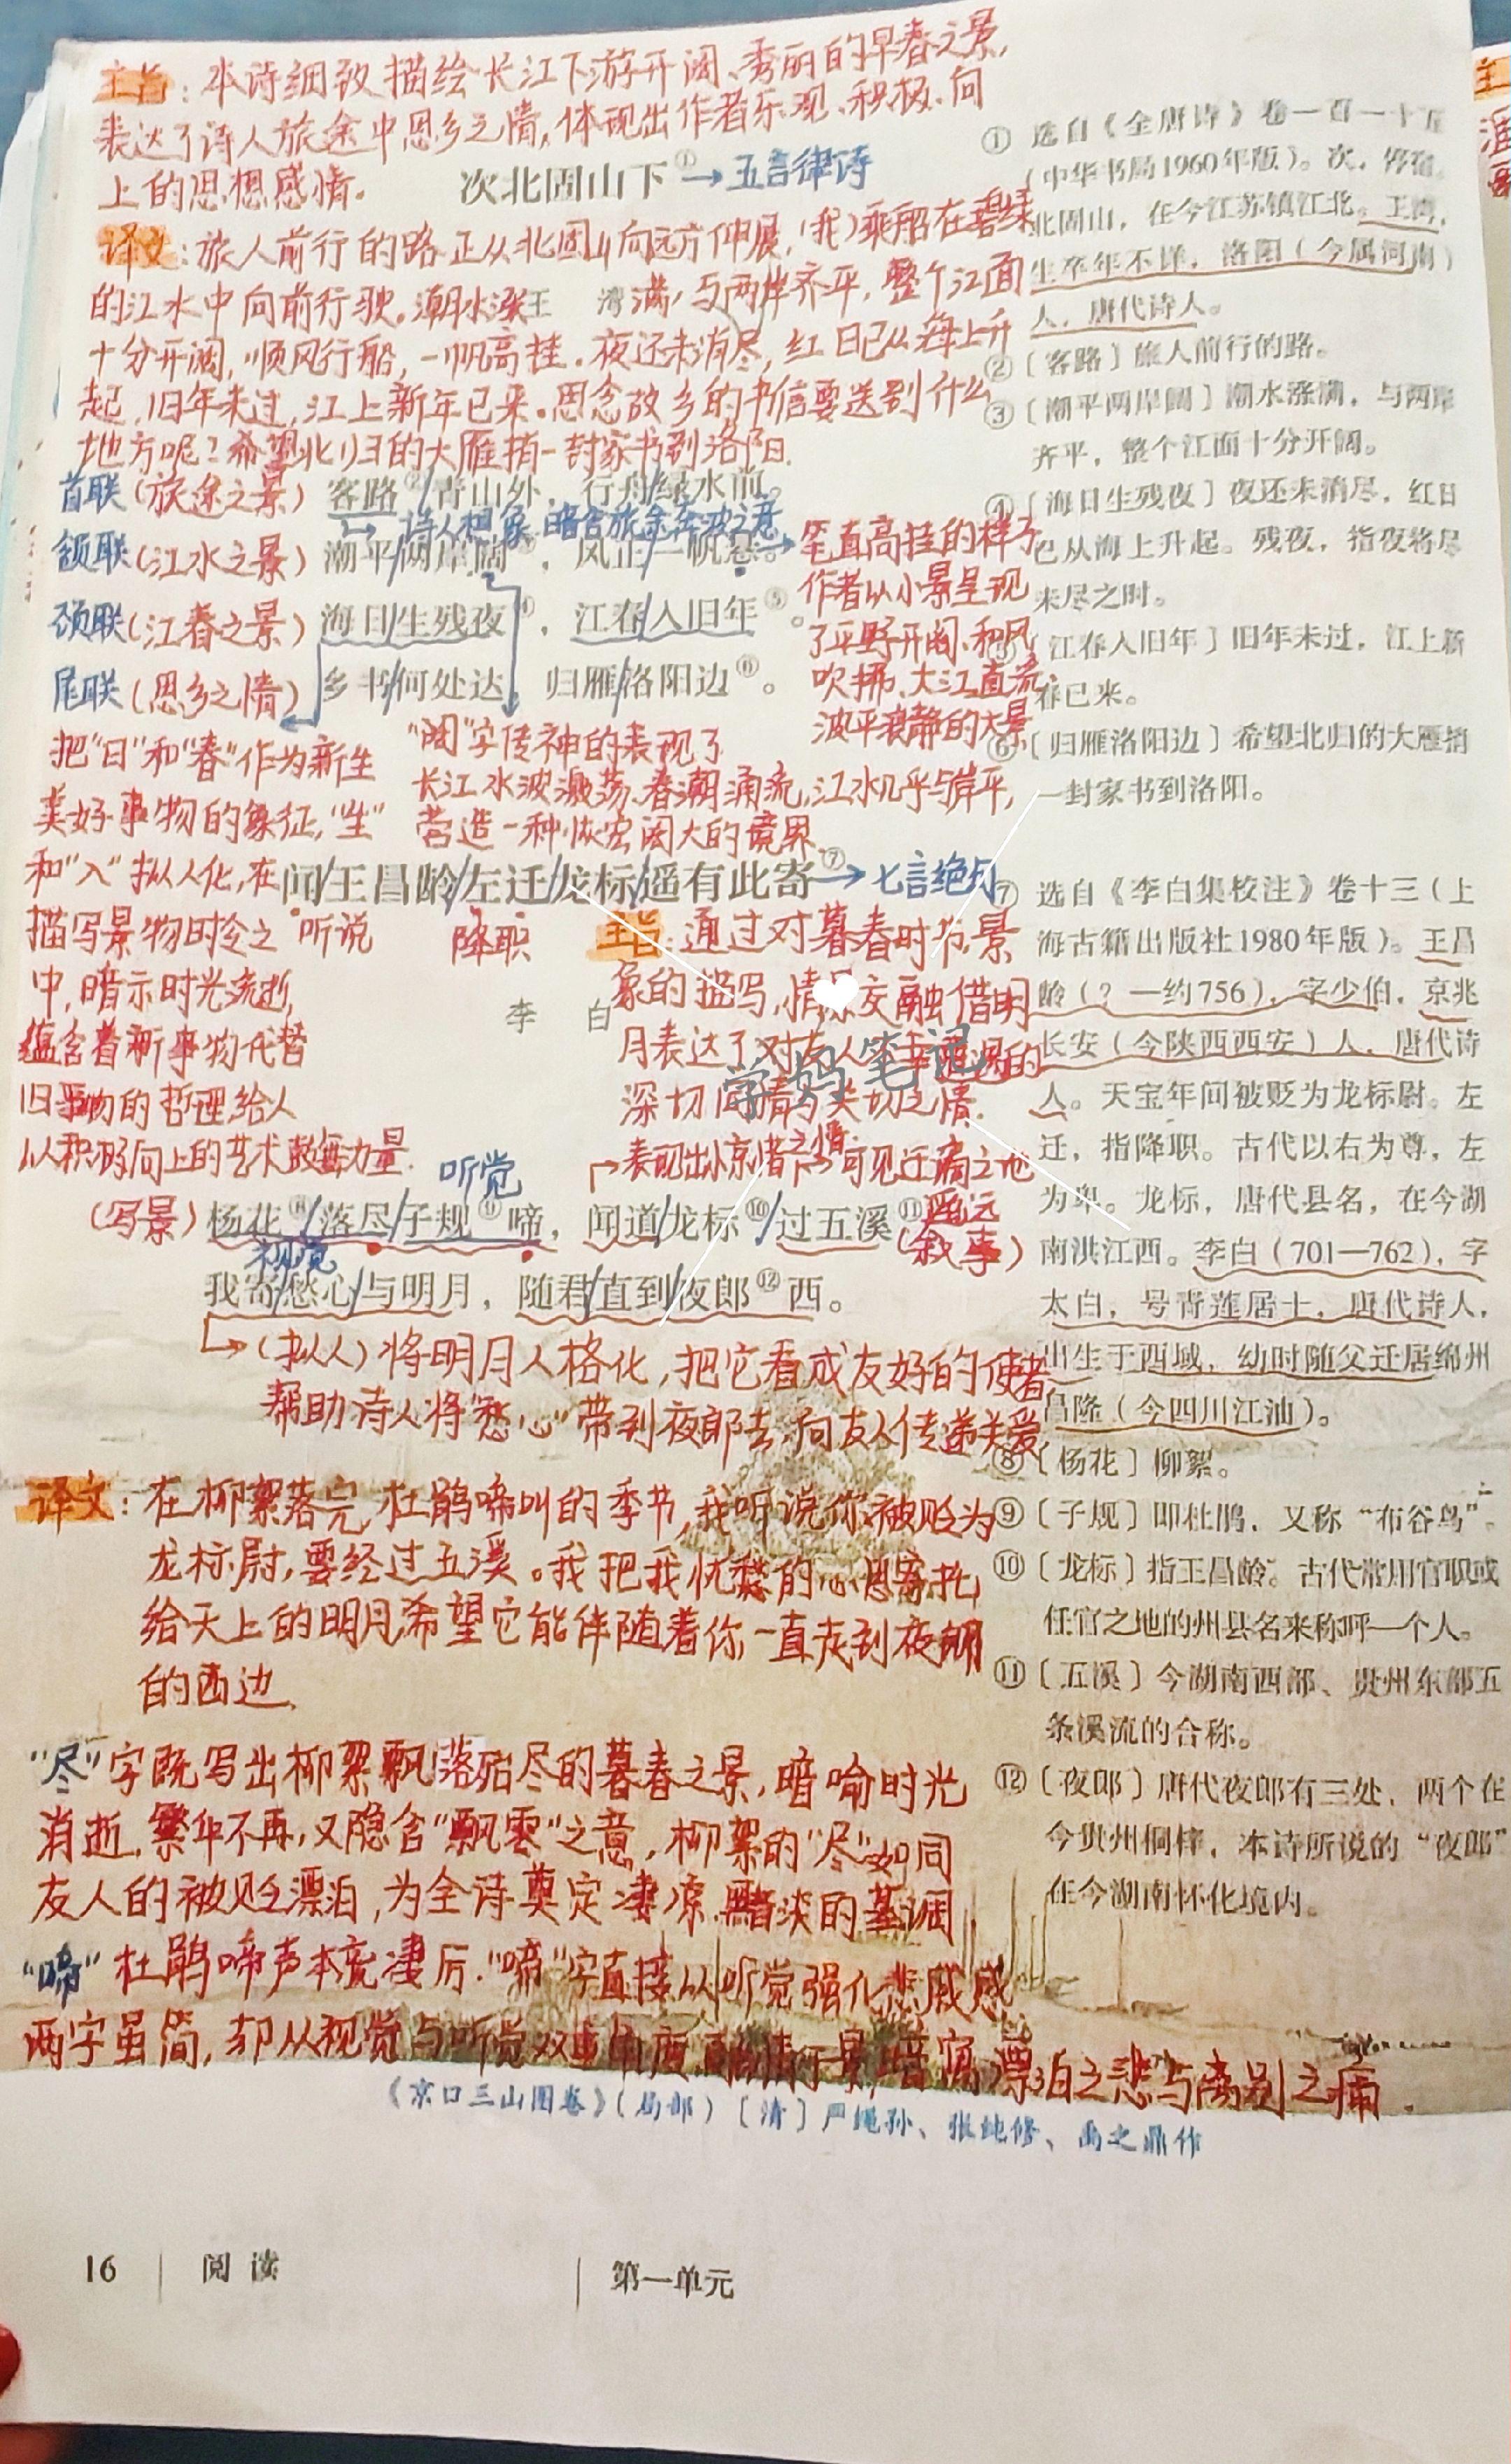 主旨：本诗细致描绘长江下游开阔、秀丽的早春之景，
表达了诗人旅途中思乡之情，体现出作者乐观、积极、向
上的思想感情。
次北固山下① → 五言律诗
译文：旅人前行的路正从北固山向远方伸展，（我）乘船在碧绿
的江水中向前行驶。潮水涨满，与两岸齐平，整个江面
王 湾
十分开阔，顺风行船，一帆高挂。夜还未消尽，红日已从海上升
起，旧年未过，江上新年已来。思念故乡的书信要送到什么
地方呢？希望北归的大雁捎一封家书到洛阳.
首联（旅途之景）客路②/青山外，行舟/绿水前。
→诗人想象，暗含旅途奔波之意
颔联（江水之景）潮平/两岸阔③，风正/一帆悬。
颈联（江春之景）海日/生残夜④，江春/入旧年⑤。
尾联（思乡之情）乡书/何处达，归雁/洛阳边⑥。
→笔直高挂的样子
作者从小景呈现
了平野开阔、和风
吹拂、大江直流、
波平浪静的大景
把“日”和“春”作为新生
美好事物的象征，“生”
和“入”拟人化，在
描写景物时令之
中，暗示时光流逝，
蕴含着新事物代替
旧事物的哲理给人
以积极向上的艺术鼓舞力量.
“阔”字传神的表现了
长江水波激荡、春潮涌流，江水几乎与岸平，
营造一种恢宏阔大的境界.
闻/王昌龄/左迁/龙标/遥有此寄⑦ → 七言绝句
听说 降职
李 白
主旨：通过对暮春时节景
象的描写，情景交融借明
月表达了对友人不幸遭遇的
深切同情与关切之情.
学妈笔记
听觉
表现出了惊惜之情
可见迁谪之地
遥远
（写景）杨花⑧/落尽/子规⑨啼，闻道/龙标⑩/过五溪⑪（叙事）
视觉
我寄/愁心/与明月，随君/直到/夜郎⑫西。
→（拟人）将明月人格化，把它看成友好的使者
帮助诗人将“愁心”带到夜郎去，向友人传递关爱
译文：在柳絮落完，杜鹃啼叫的季节，我听说你被贬为
龙标尉，要经过五溪。我把我忧愁的心思寄托
给天上的明月，希望它能伴随着你，一直走到夜郎
的西边.
“尽”字既写出柳絮飘落殆尽的暮春之景，暗喻时光
消逝，繁华不再，又隐含“飘零”之意，柳絮的“尽”如同
友人的被贬漂泊，为全诗奠定凄凉、黯淡的基调.
“啼”杜鹃啼声本就凄厉.“啼”字直接从听觉强化悲戚感
两字虽简，却从视觉与听觉双重角度，融情于景，暗寓漂泊之悲与离别之痛.
《京口三山图卷》（局部）〔清〕严绳孙、张纯修、禹之鼎作
① 选自《全唐诗》卷一百一十五
（中华书局1960年版）。次，停宿。
北固山，在今江苏镇江北。王湾，
生卒年不详，洛阳（今属河南）
人，唐代诗人。
②〔客路〕旅人前行的路。
③〔潮平两岸阔〕潮水涨满，与两岸
齐平，整个江面十分开阔。
④〔海日生残夜〕夜还未消尽，红日
已从海上升起。残夜，指夜将尽
未尽之时。
⑤〔江春入旧年〕旧年未过，江上新
春已来。
⑥〔归雁洛阳边〕希望北归的大雁捎
一封家书到洛阳。
⑦ 选自《李白集校注》卷十三（上
海古籍出版社1980年版）。王昌
龄（？—约756），字少伯，京兆
长安（今陕西西安）人，唐代诗
人。天宝年间被贬为龙标尉。左
迁，指降职。古代以右为尊，左
为卑。龙标，唐代县名，在今湖
南洪江西。李白（701—762），字
太白，号青莲居士，唐代诗人，
出生于西域，幼时随父迁居绵州
昌隆（今四川江油）。
⑧〔杨花〕柳絮。
⑨〔子规〕即杜鹃，又称“布谷鸟”。
⑩〔龙标〕指王昌龄。古代常用官职或
任官之地的州县名来称呼一个人。
⑪〔五溪〕今湖南西部、贵州东部五
条溪流的合称。
⑫〔夜郎〕唐代夜郎有三处，两个在
今贵州桐梓，本诗所说的“夜郎”
在今湖南怀化境内。
16 | 阅读 | 第一单元